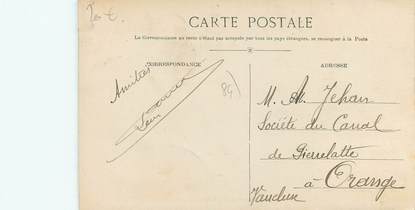 10 €
CARTE POSTALE
La Correspondance au recto n'était pas acceptée par tous les pays étrangers, se renseigner à la Poste
CORRESPONDANCE
ADRESSE
Amitiés
84)
M. M. Jehan
Société du Canal
de Pierrelatte
à Orange
Vaucluse